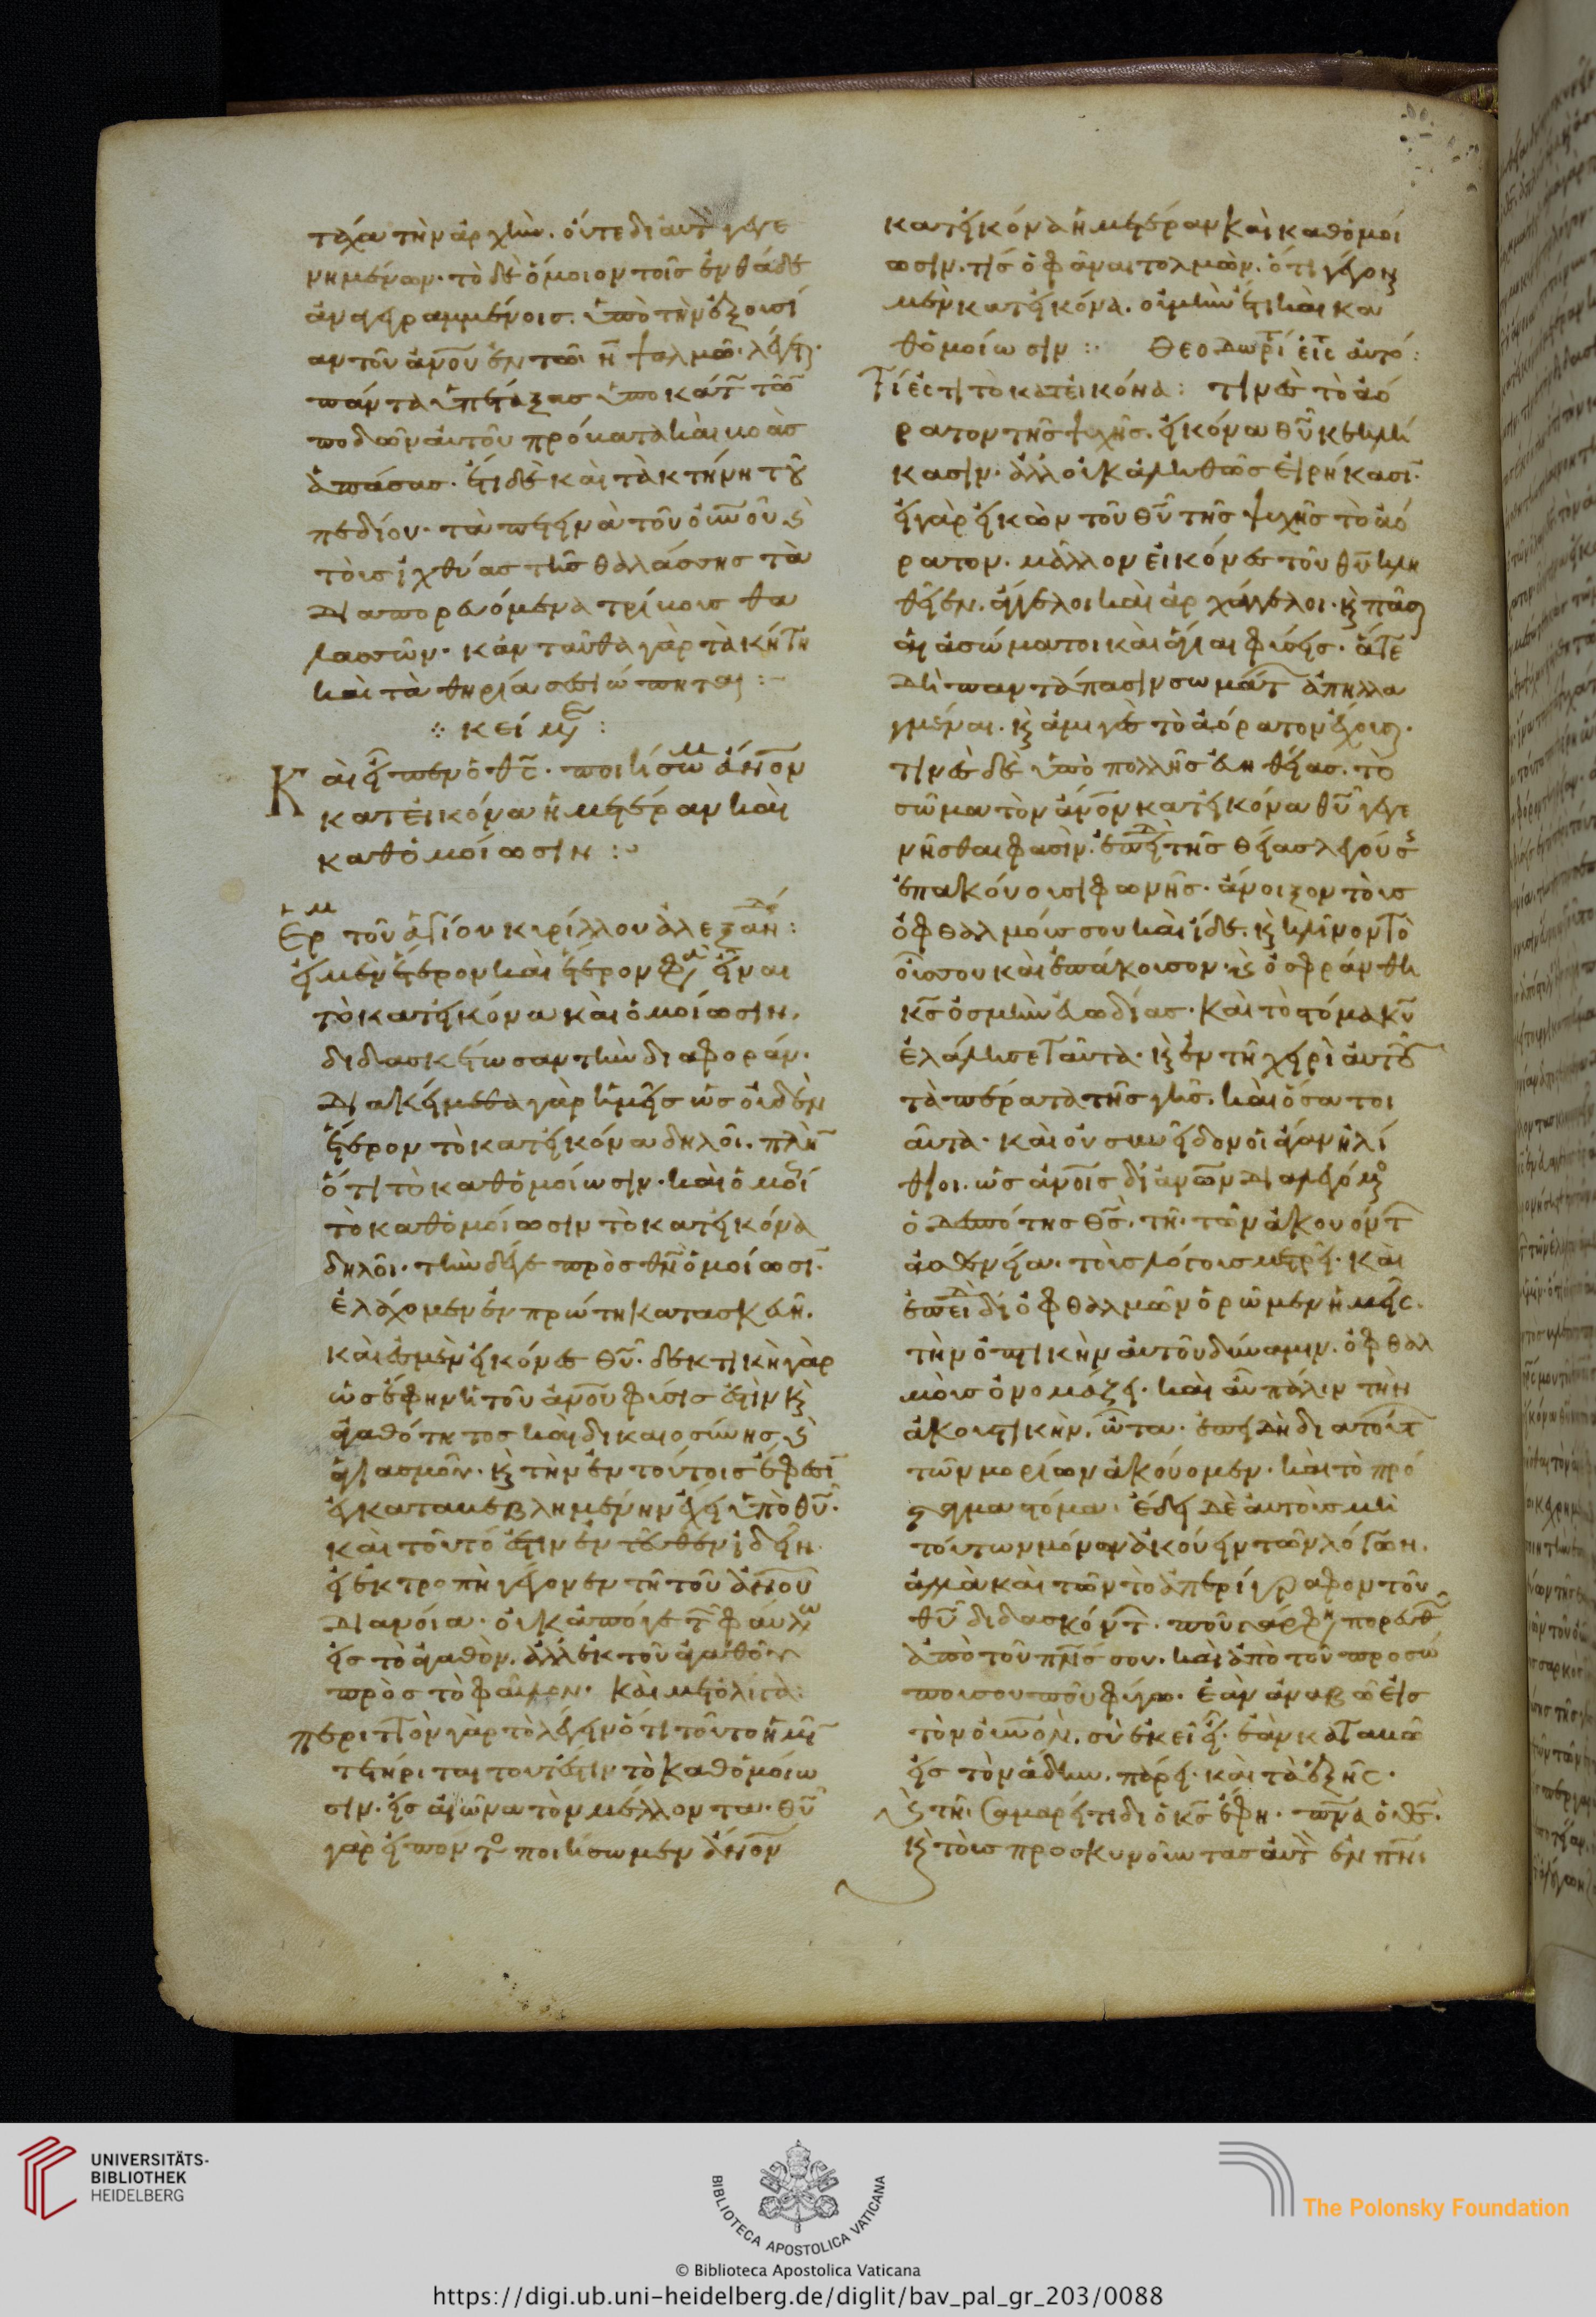 τάχα τὴν ἀρχὴν. οὔτε δι' αὐτ γεγε
νημένων· τὸ δὲ ὅμοιον τοῖς ἐνθάδε
ἀναγεγραμμένοις. ὑπὸ τὴν ἐξουσί
αν τοῦ ἀνου ἐν τῶ η ψαλμῶ· λέγεται·
πάντα ὑπέταξας ὑποκάτ τῶ
ποδῶν αὐτοῦ πρόβατα καὶ βόας
ἁπάσας· ἔτι δὲ καὶ τὰ κτήνη τοῦ
πεδίου· τὰ πετεινὰ τοῦ οὐνοῦ καὶ
τοὺς ἰχθύας τῆς θαλάσσης τὰ
διαπορευόμενα τρίβους θα
λασσῶν· κἀνταῦθα γὰρ τὰ κήτη
καὶ τὰ θηρία σεσιώπηται :-
κείμε :
Καὶ εἶπεν ὁ θς· ποιήσωμ ἄνον
κατ' εἰκόνα ἡμετέραν καὶ
καθ' ὁμοίωσιν :
Ἑρμ τοῦ ἁγίου κυρίλλου ἀλεξανδ :
εἰ μὲν ἕτερον καὶ ἕτερον φα εἶναι
τὸ κατ' εἰκόνα καὶ ὁμοίωσιν.
διδασκέτωσαν τὴν διαφοράν·
διακείμεθα γὰρ ἡμεῖς ὡς οὐδὲν
ἕτερον τὸ κατ' εἰκόνα δηλοῖ. πλὴν
ὅτι τὸ καθ' ὁμοίωσιν· καὶ ὁμοί
τὸ καθ' ὁμοίωσιν τὸ κατ' εἰκόνα
δηλοῖ· τὴν δέ γε πρὸς θν ὁμοίωσιν·
ἐλάχομεν ἐν πρώτη κατασκευῆ.
καὶ ἐσμὲν εἰκόνες θυ· δεκτικὴ γὰρ
ὡς ἔφην ἡ τοῦ ἀνου φύσις ἐστὶν καὶ
ἀγαθότητος καὶ δικαιοσύνης καὶ
ἁγιασμοῦ· καὶ τὴν ἐν τούτοις ἔφεσιν
ἐγκαταβεβλημένην ἔχει ὑπὸ θυ·
καὶ τοῦτό ἐστιν ἐντεῦθεν ἰδεῖν.
εἰ ἐκτροπὴ γέγονεν τῆ τοῦ ἀνου
διανοία· οὐκ ἀπό γε τ φαύλω
εἰς τὸ ἀγαθόν. ἀλλ' ἐκ τοῦ ἀγαθοῦ
πρὸς τὸ φαῦλον· καὶ μετ' ὀλίγα:
περιττὸν γὰρ τὸ λέγειν ὅτι τοῦτο ἡμῖν
τετήρηται τουτέστιν τὸ καθ' ὁμοίω
σιν· εἰς αἰῶνα τὸν μέλλοντα· θυ
γὰρ εἰπόντο ποιήσωμεν ἄνον
κατ' εἰκόνα ἡμετέραν καὶ καθ' ὁμοί
ωσιν. τίς ὁ φᾶναι τολμῶν. ὅτι γέγονε
μὲν κατ' εἰκόνα. οὐ μὴν ἔτι καὶ κα
θ' ὁμοίωσιν :· Θεοδωρι εἰς αὐτό :
Τί ἐστι τὸ κατ' εἰκόνα : τινὲς τὸ ἀό
ρατον τῆς ψυχῆς. εἰκόνα θυ κεκλή
κασιν· ἀλλ' οὐκ ἀληθῶς εἰρήκασι·
εἰ γὰρ εἰκὼν τοῦ θυ τῆς ψυχῆς τὸ ἀό
ρατον. μᾶλλον εἰκόνες τοῦ θυ κλη
θεῖεν. ἄγγελοι καὶ ἀρχάγγελοι· καὶ πᾶσαι
αἱ ἀσώματοι καὶ ἅγιαι φύσεις· ἅτε
δὴ παντάπασιν σωμάτ ἀπηλλα
γμέναι. καὶ ἀμιγὲς τὸ ἀόρατον ἔχουσι·
τινὲς δὲ ὑπὸ πολλῆς εὐηθείας. τὸ
σῶμα τὸν ἄνον κατ' εἰκόνα θυ γεγε
νῆσθαι φασίν. ἐπειδὴ τῆς θείας λεγούσης
ἐπακούουσι φωνῆς· ἄνοιξον τοὺς
ὀφθαλμούς σου καὶ ἴδε. καὶ κλῖνον τὸ
οὖς σου καὶ ἐπάκουσον· καὶ ὀσφράνθη
κς ὀσμὴν εὐωδίας· καὶ τὸ στόμα κυ
ἐλάλησε ταῦτα· καὶ ἐν τῆ χειρὶ αὐτοῦ
τὰ πέρατα τῆς γῆς. καὶ ὅσα τοι
αῦτα· καὶ οὐ συνεῖδον οἱ ἄγαν ἠλί
θιοι. ὡς ἀνοις δι' ἀνων διαλεγόμενο
ὁ δεσπότης θς. τῆ τῶν ἀκουόντ
ἀσθενεία. τοὺς λόγους μετρεῖ· καὶ
ἐπειδ δι' ὀφθαλμῶν ὁρῶμεν ἡμεῖς.
τὴν ὀπτικὴν αὐτοῦ δύναμιν. ὀφθαλ
μοὺς ὀνομάζει· καὶ αὖ πάλιν τὴν
ἀκουστικὴν. ὦτα· ἐπειδὴ διὰ τούτ
τῶν μορίων ἀκούομεν· καὶ τὸ πρό
σταγμα στόμα. ἔδει δὲ αὐτοὺς μὴ
τούτων μόνον ἀκούειν τῶν λόγων.
ἀλλὰ καὶ τῶν τὸ ἀπερίγραφον τοῦ
θυ διδασκόντ· ποῦ γάρ φη πορευθ
ἀπὸ τοῦ πνς σου. καὶ ἀπὸ τοῦ προσώ
που σου ποῦ φύγω· ἐὰν ἀναβῶ εἰς
τὸν οὐνον. σὺ ἐκεῖ εἶ· ἐὰν καταβῶ
εἰς τὸν ἅδην. πάρει· καὶ τὰ ἑξῆς·
καὶ τῆ Σαμαρείτιδι ὁ κς ἔφη· πνα ὁ θς·
καὶ τοὺς προσκυνοῦντας αὐτ ἐν πνι
UNIVERSITÄTS-
BIBLIOTHEK
HEIDELBERG
BIBLIOTECA APOSTOLICA VATICANA
The Polonsky Foundation
© Biblioteca Apostolica Vaticana
https://digi.ub.uni-heidelberg.de/diglit/bav_pal_gr_203/0088